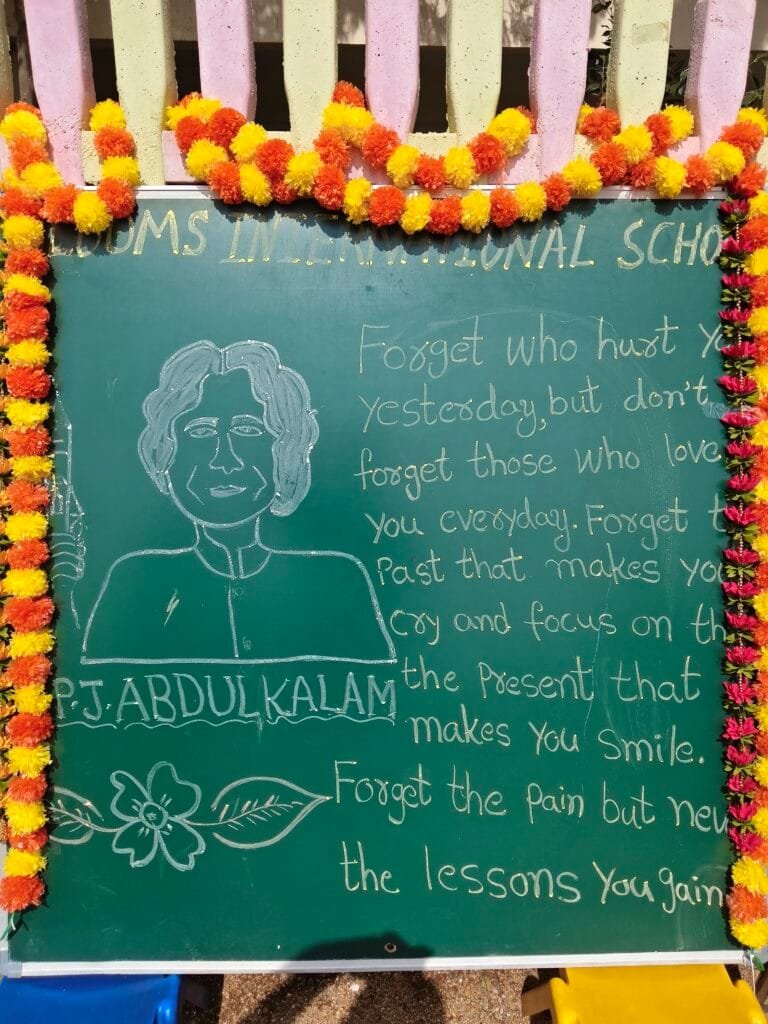 LOOMS INTERNATIONAL SCHO
Forget who hurt y
yesterday, but don't
forget those who love
you everyday. Forget t
Past that makes you
cry and focus on th
the present that
makes you smile.
Forget the pain but nev
the lessons you gain
P.J. ABDUL KALAM